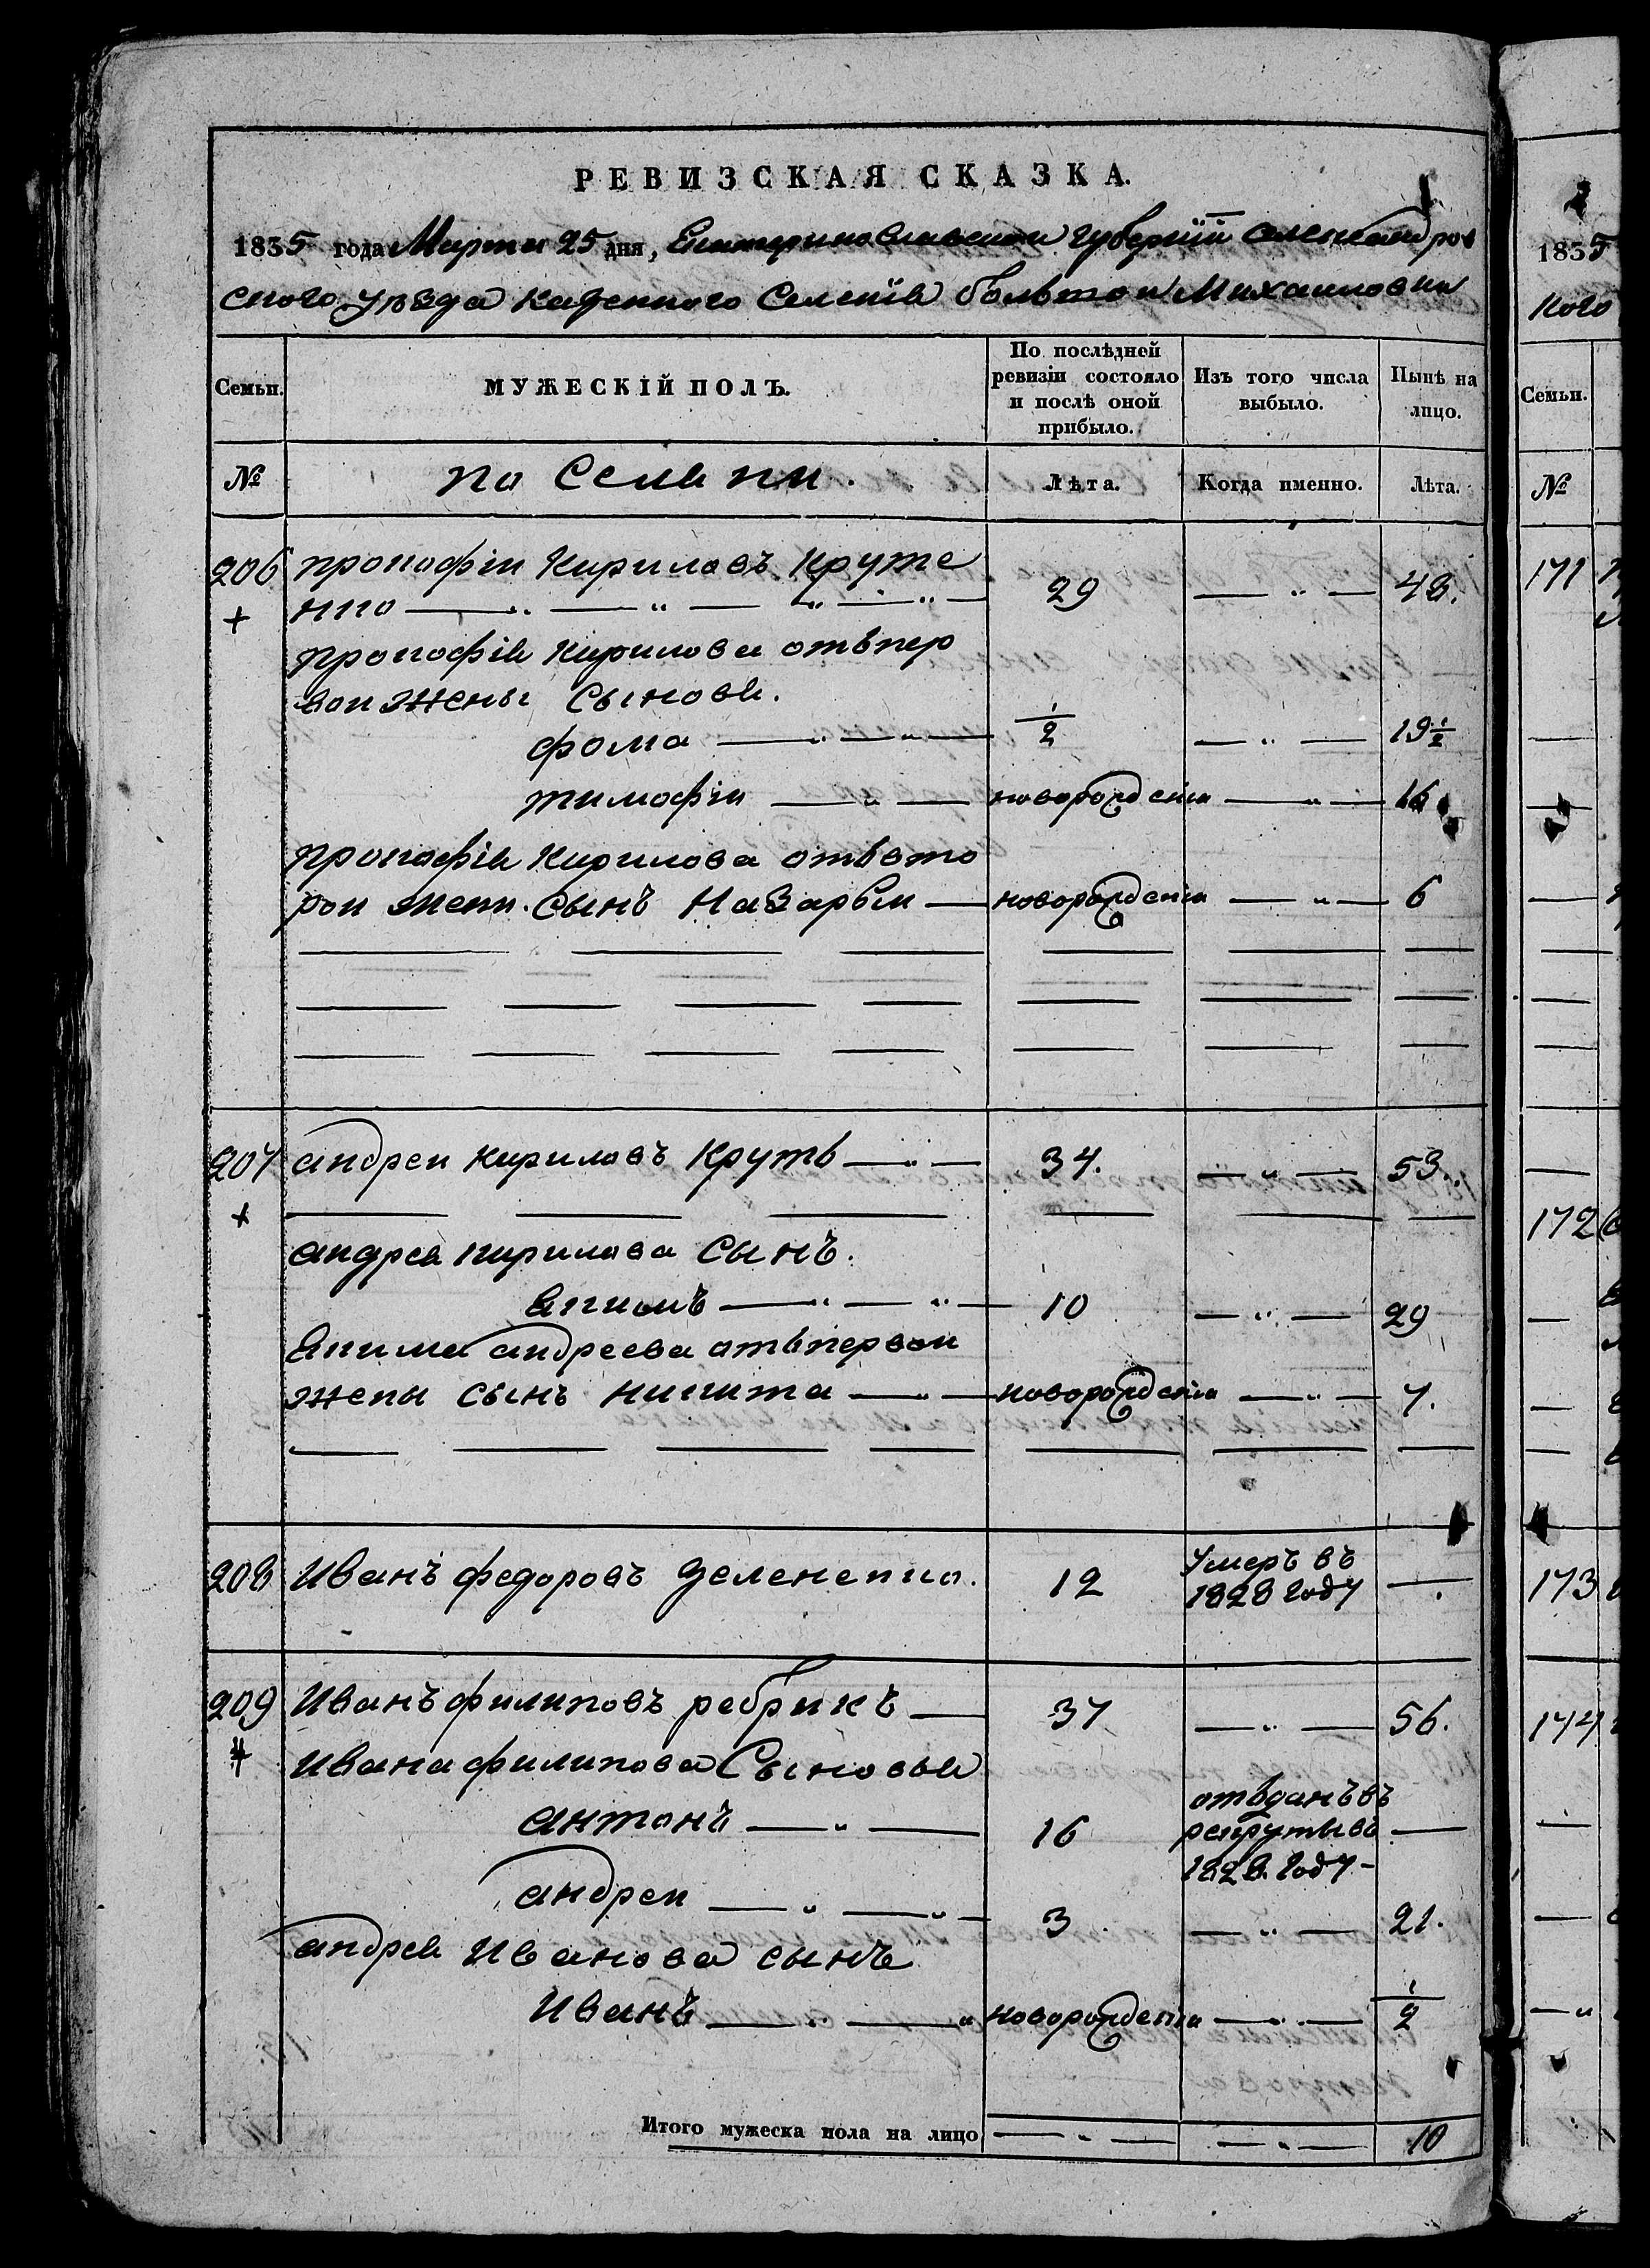 РЕВИЗСКАЯ СКАЗКА.
1835 года Марта 25 дня, Екатеринославской губернїи Александров
ского уѣзда казенного Селенїя большой Михаиловки
Семьи. МУЖЕСКІЙ ПОЛЪ. По послѣдней ревизіи состояло и послѣ оной прибыло. Изъ того числа выбыло. Нынѣ на лицо.
№ Лѣта. Когда именно. Лѣта.
206 прокофіи Кириловъ Круте
нко 29 48.
прокофія Кирилова отъ пер
вои жены Сыновя.
фома 1/2 19 1/2
тимофіи новорожденїи 16
прокофія Кирилова отъ вто
рои жены. Сынъ Назарьи новорожденїи 6
207 андреи Кириловъ Круть 34. 53.
андрея кирилова Сынъ.
Якимъ 10 29
Якима андреева отъ первои
жены сынъ никита новорожденїи 7.
208 Иванъ федоровъ Зеленепко. 12 Умеръ въ
1828 году
209 Иванъ филиповъ ребрикъ 37 56.
Ивана филипова Сыновья
антонъ 16 отъданъ въ
рекруты въ
1828 году
андреи 3 21.
андрея Иванова сынъ
Иванъ новорожденїи 1/2
Итого мужеска пола на лицо 10
2
1835
кого
Семьи.
№
171
172
173
174